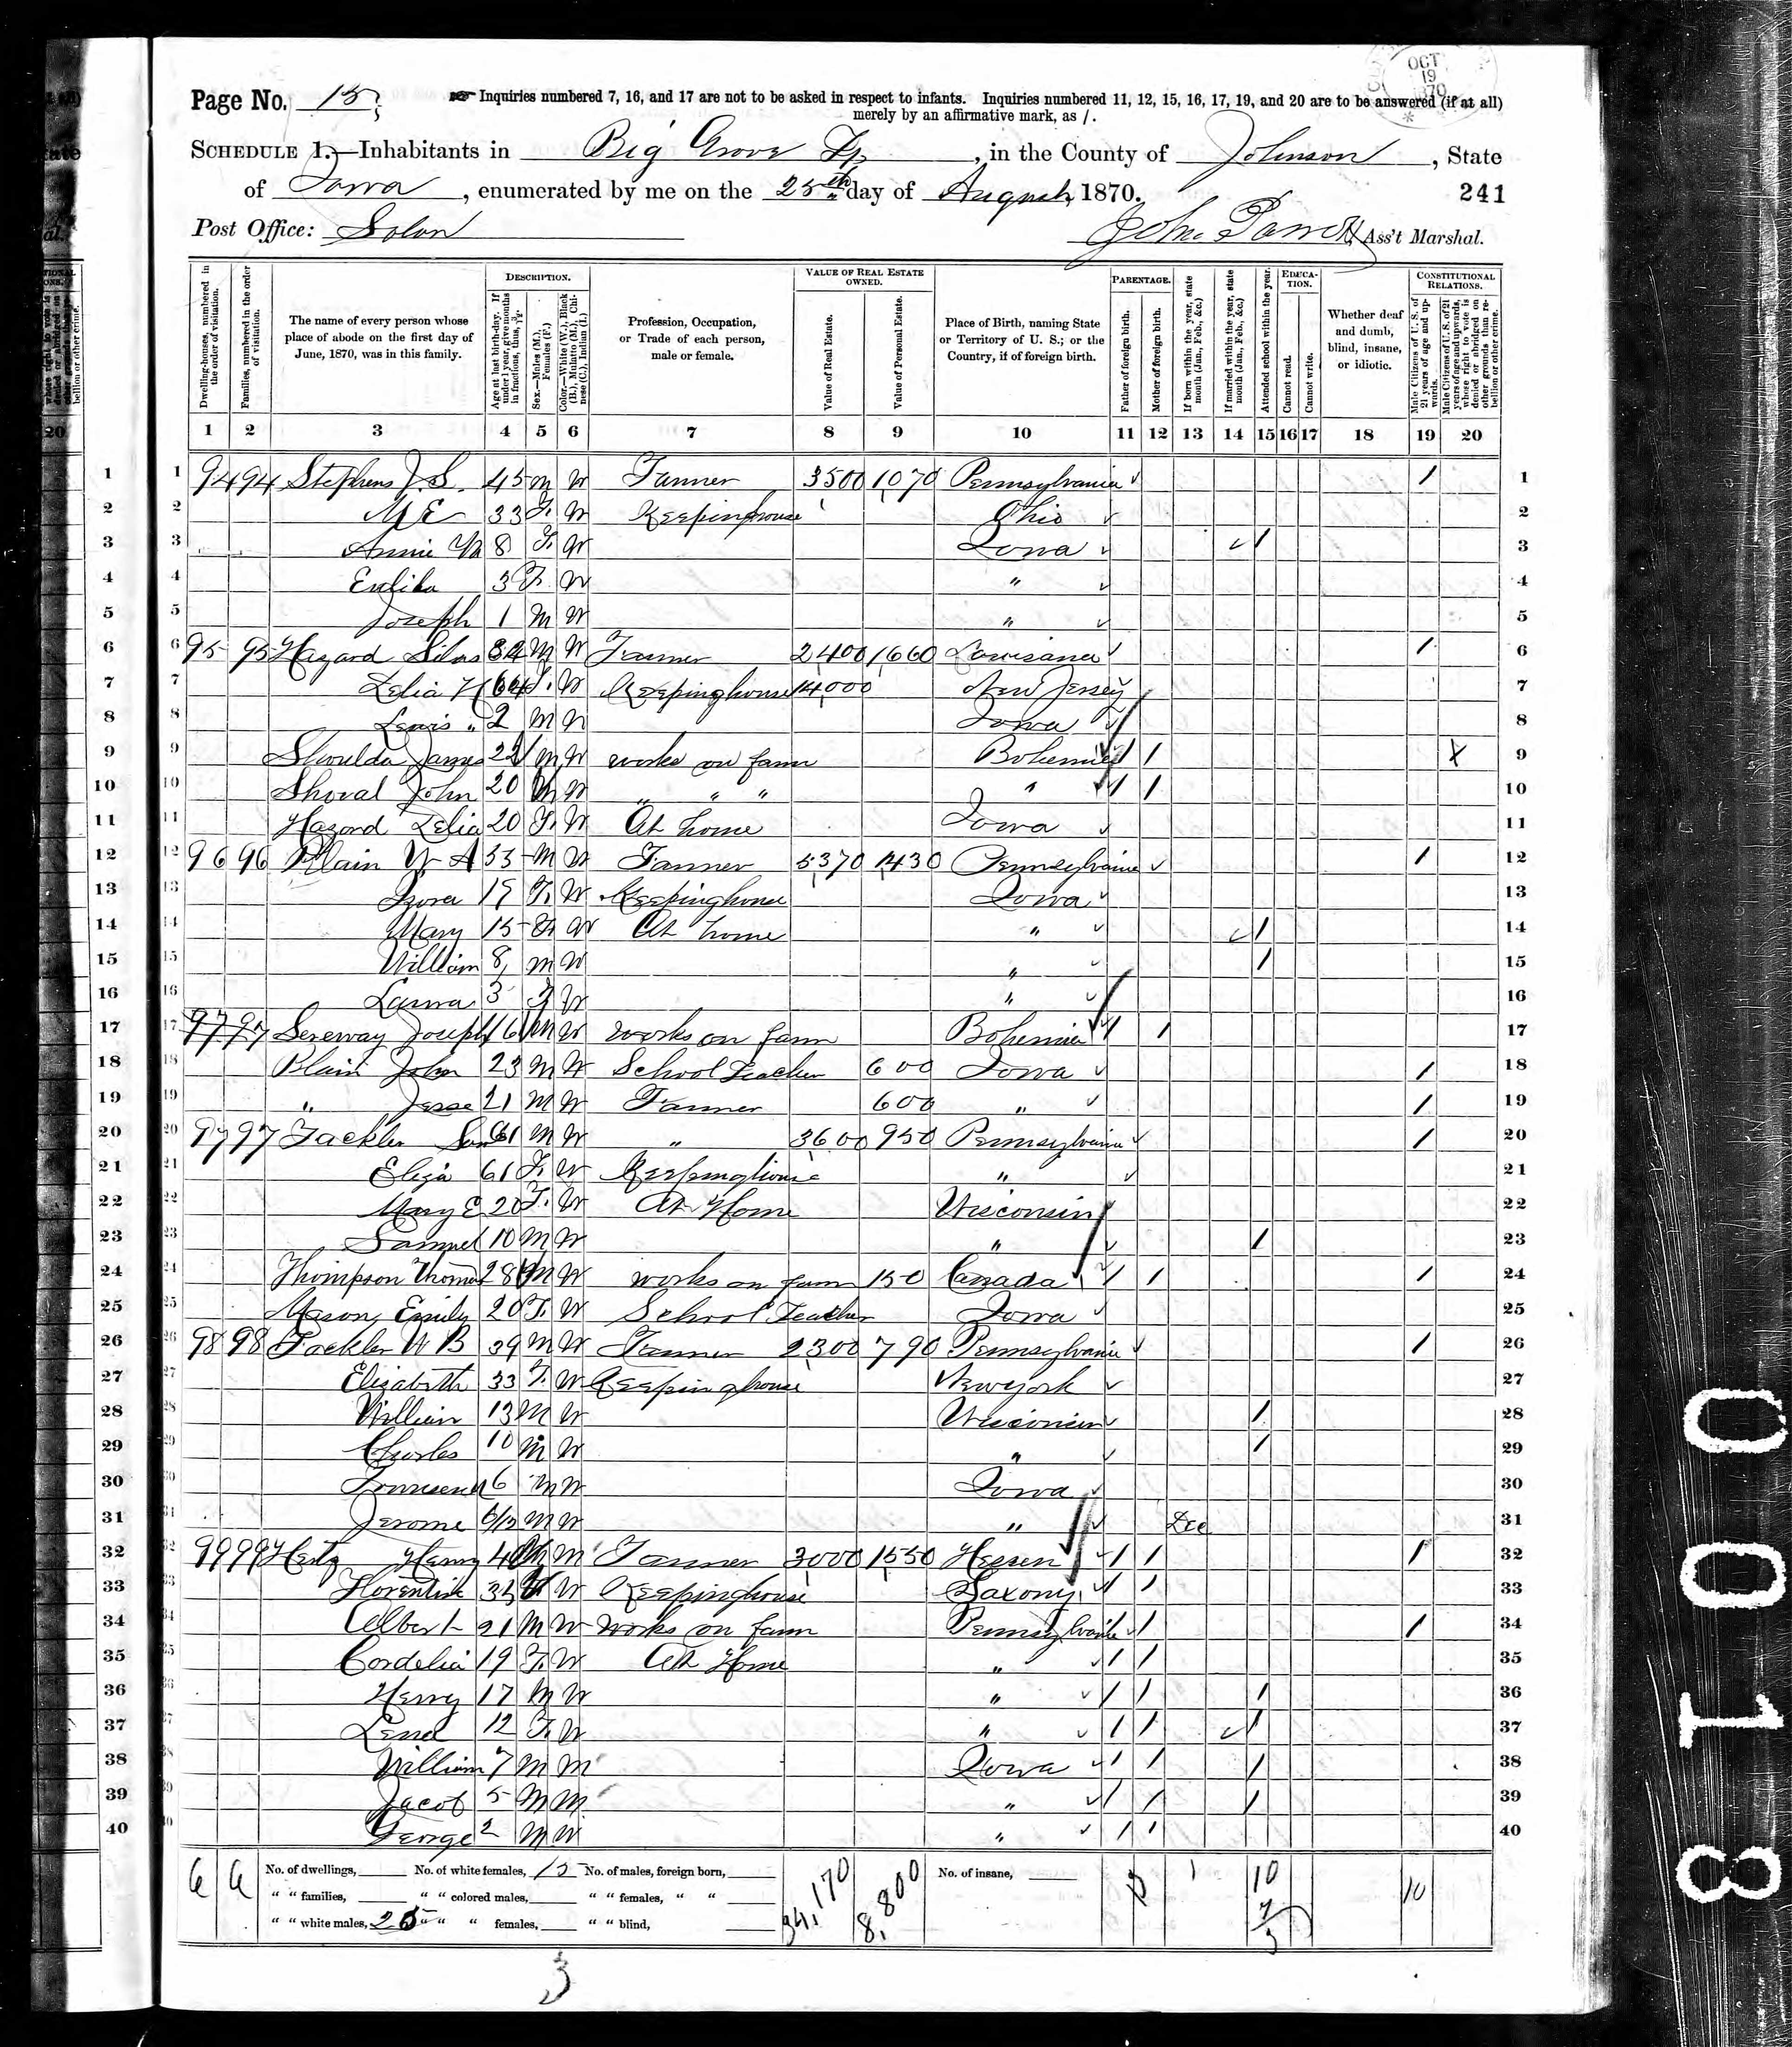 Page No. 15
☞ Inquiries numbered 7, 16, and 17 are not to be asked in respect to infants. Inquiries numbered 11, 12, 15, 16, 17, 19, and 20 are to be answered (if at all)
merely by an affirmative mark, as /.
OCT 19 1870
SCHEDULE 1.—Inhabitants in Big Grove Tp, in the County of Johnson, State
of Iowa, enumerated by me on the 25th day of August, 1870.
241
Post Office: Solon
John Ass't Marshal.
Dwelling-houses, numbered in the order of visitation.
Families, numbered in the order of visitation.
The name of every person whose place of abode on the first day of June, 1870, was in this family.
DESCRIPTION.
Age at last birth-day. If under 1 year, give months in fractions, thus, 3/12.
Sex.—Males (M.), Females (F.)
Color.—White (W.), Black (B.), Mulatto (M.), Chinese (C.), Indian (I.)
Profession, Occupation, or Trade of each person, male or female.
VALUE OF REAL ESTATE OWNED.
Value of Real Estate.
Value of Personal Estate.
Place of Birth, naming State or Territory of U. S.; or the Country, if of foreign birth.
PARENTAGE.
Father of foreign birth.
Mother of foreign birth.
If born within the year, state month (Jan., Feb., &c.)
If married within the year, state month (Jan., Feb., &c.)
Attended school within the year.
EDUCATION.
Cannot read.
Cannot write.
Whether deaf and dumb, blind, insane, or idiotic.
CONSTITUTIONAL RELATIONS.
Male Citizens of U. S. of 21 years of age and upwards.
Male Citizens of U. S. of 21 years of age and upwards, whose right to vote is denied or abridged on other grounds than rebellion or other crime.
1 2 3 4 5 6 7 8 9 10 11 12 13 14 15 16 17 18 19 20
1 94 94 Stephens J. S. 45 M W Farmer 3500 1070 Pennsylvania / 1
2 M E 33 F W Keepinghouse Ohio 2
3 Annie M 8 F W Iowa / 3
4 3 F W " 4
5 Joseph 1 M W " 5
6 95 95 Hazard Silas M W Farmer 2400 1660 Louisiana / 6
7 Zelia H F W Keepinghouse 14000 New Jersey 7
8 Lewis " 2 M W Iowa 8
9 Shoulda James 22 M W works on farm Bohemia / / X 9
10 Shoval John 20 M W " " " " / / 10
11 Hazard Zelia 20 F W At home Iowa 11
12 96 96 Plain W A 53 M W Farmer 5370 1430 Pennsylvania / 12
13 Izora F W Keepinghouse Iowa 13
14 Mary 15 F W At home " / 14
15 William 8 M W " / 15
16 Laura 3 F W " 16
17 97 97 Sereway Joseph 16 M W works on farm Bohemia / / 17
18 Plain John 23 M W School Teacher 600 Iowa / 18
19 " Jesse 21 M W Farmer 600 " / 19
20 97 97 Fackler 61 M W " 3600 950 Pennsylvania / 20
21 Eliza 61 F W Keepinghouse " 21
22 Mary E 20 F W At Home Wisconsin 22
23 Samuel 10 M W " / 23
24 Thompson Thomas 28 M W works on farm 150 Canada / / / 24
25 Mason Emily 20 F W School Teacher Iowa 25
26 98 98 Fackler W B 39 M W Farmer 2300 790 Pennsylvania / 26
27 Elizabeth 33 F W Keepinghouse New york 27
28 William 13 M W Wisconsin / 28
29 Charles 10 M W " / 29
30 Townsend 6 M W Iowa 30
31 Jerome 6/12 M W " Dec 31
32 99 99 Hertz Henry M W Farmer 3000 1550 Hessen / / / 32
33 Florentine F W Keepinghouse Saxony / / 33
34 Albert 21 M W works on farm Pennsylvania / / / 34
35 Cordelia 19 F W At Home " / / 35
36 Henry 17 M W " / / / 36
37 Lena 12 F W " / / / 37
38 William 7 M W Iowa / / / 38
39 Jacob 5 M W " / / / 39
40 George 2 M W " / / 40
6 6 No. of dwellings, No. of white females, 15 No. of males, foreign born, 34,170 8,800 No. of insane, 1 10 10
" " families, " " colored males, " " females, " "
" " white males, 25 " " females, " " blind,
3
0018